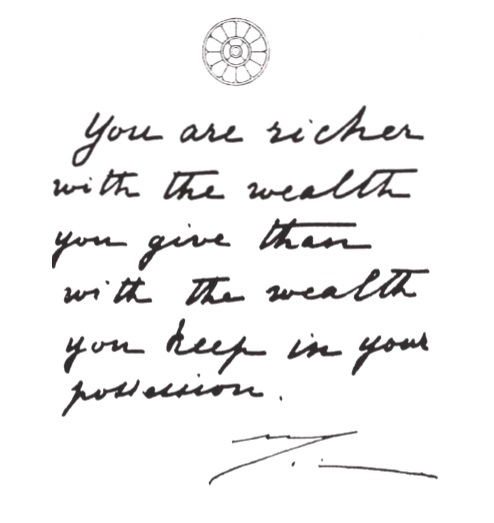 You are richer
with the wealth
you give than
with the wealth
you keep in your
possession.